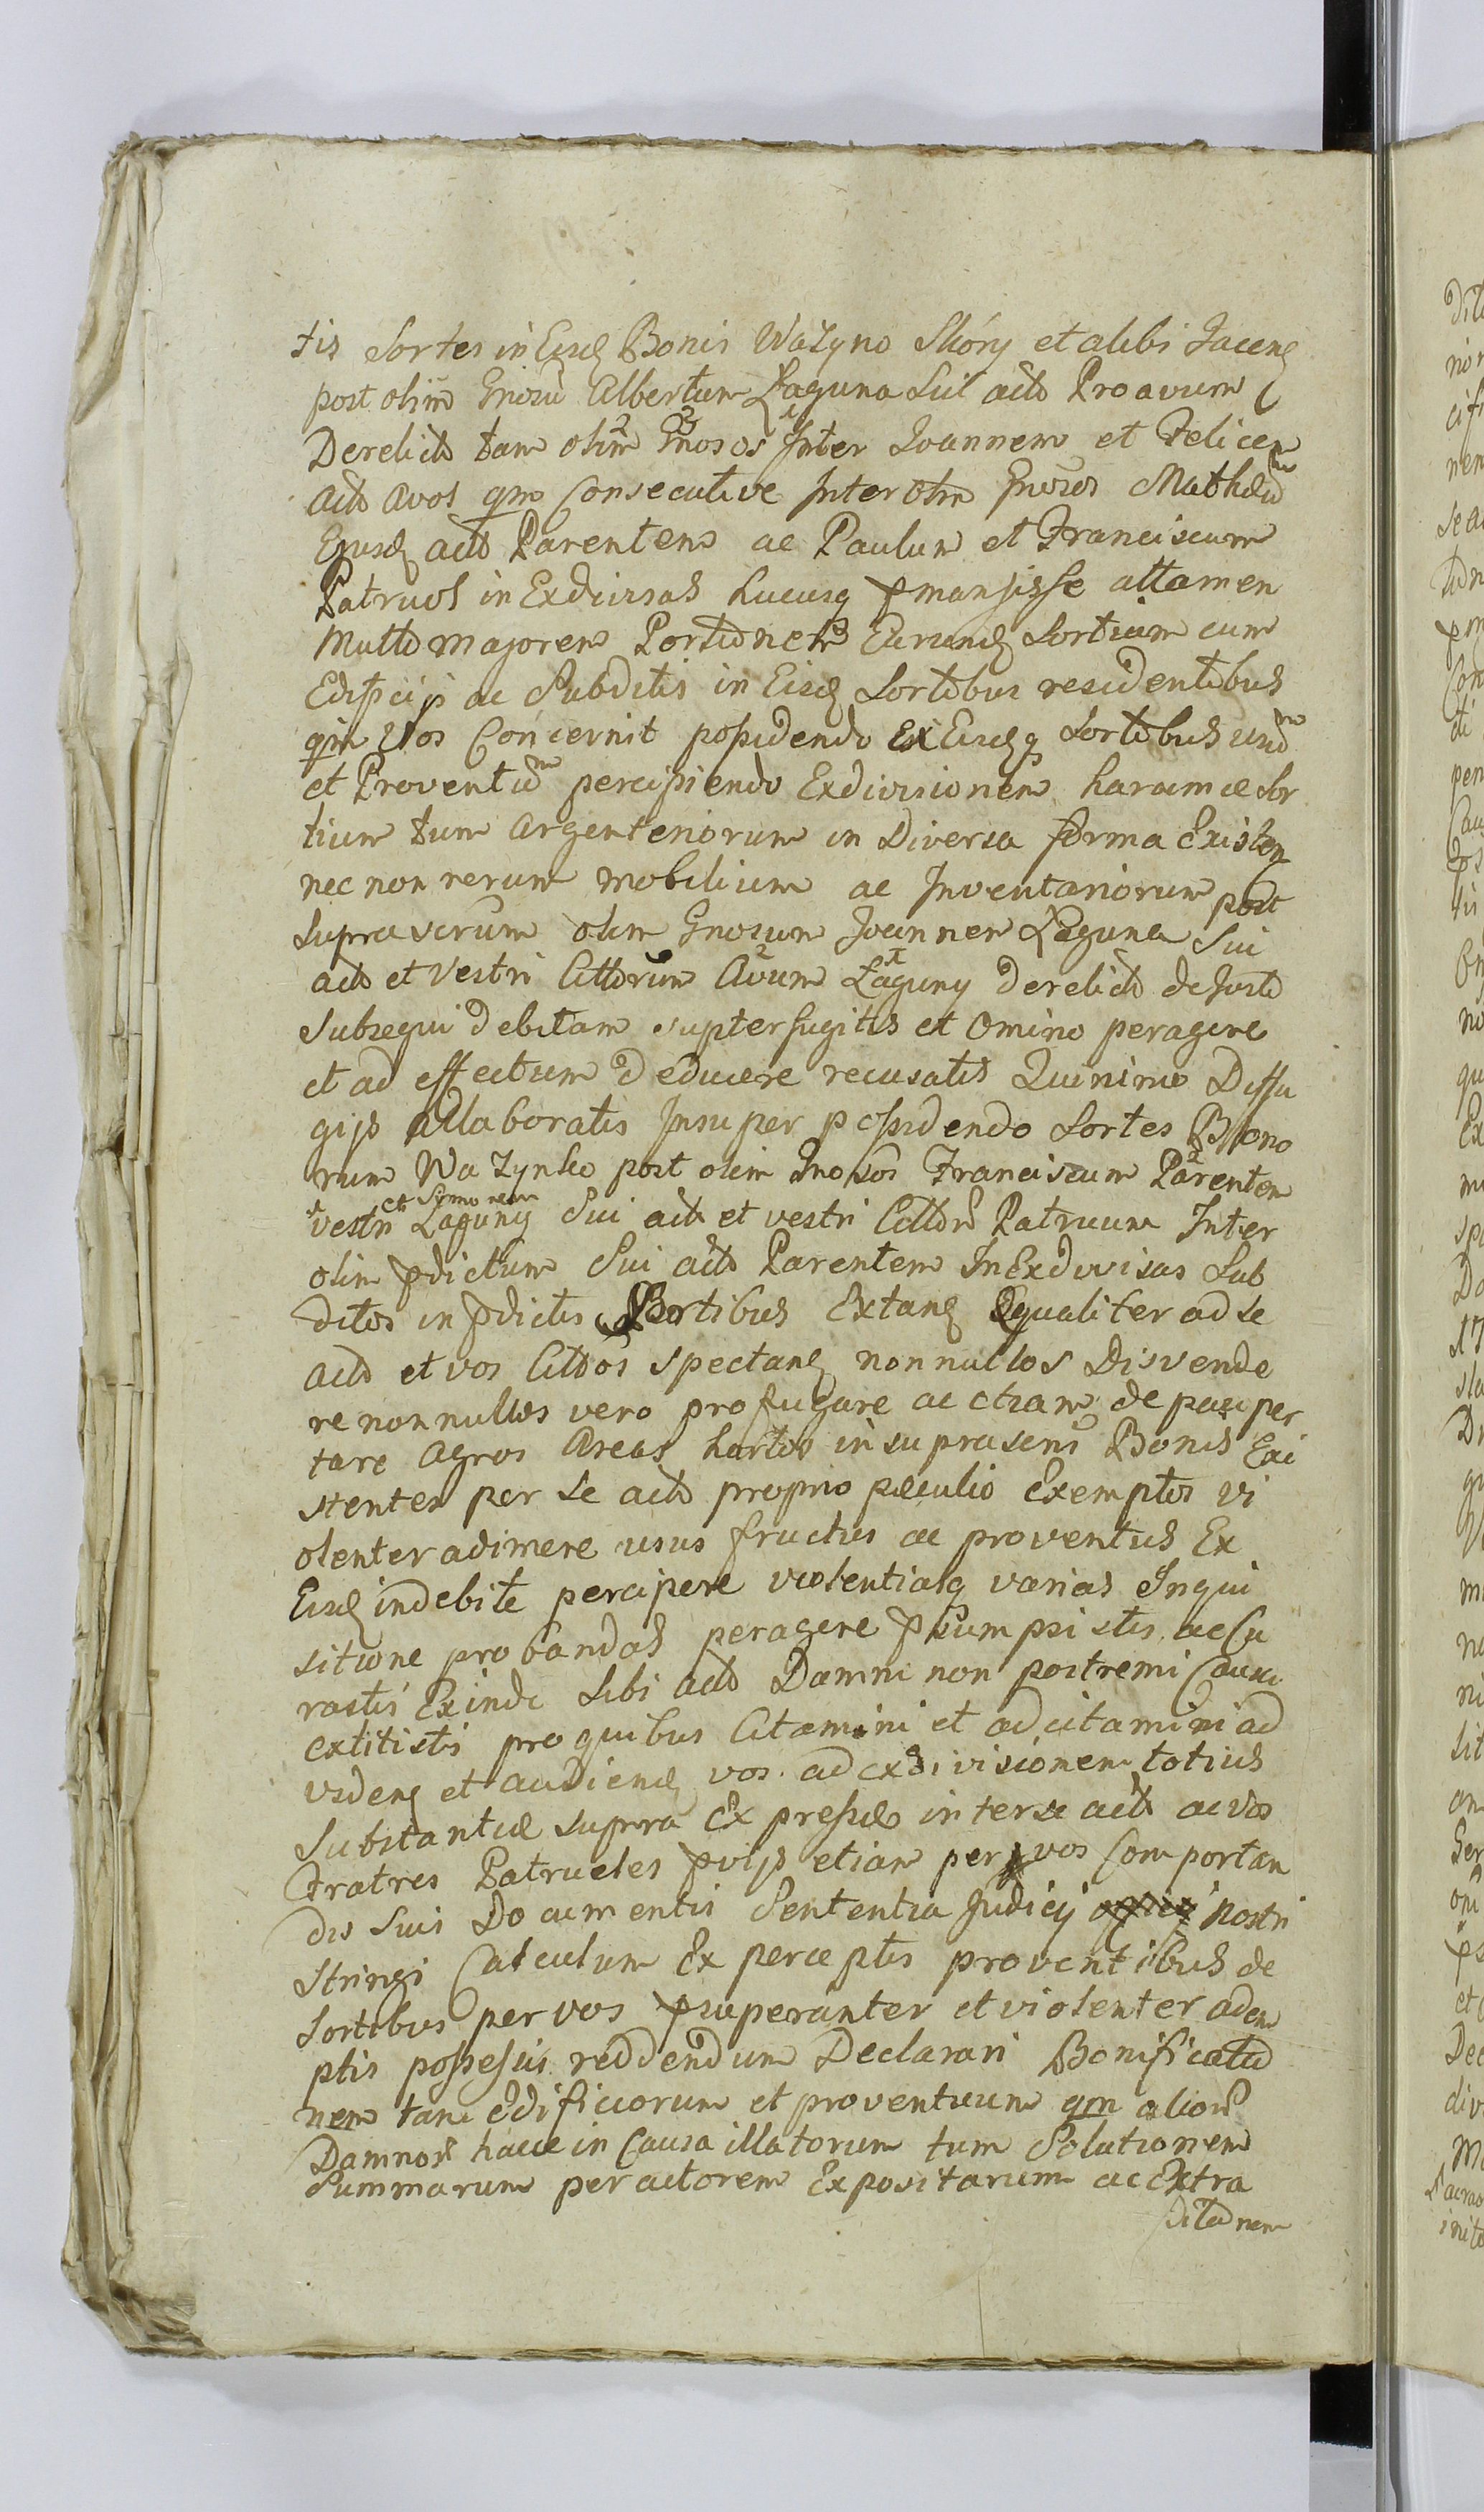 tis Sortes in Eisd Bonis Wazyno Skóry et alibi Jacend
post olim Gnosu Albertum Laguna Sui acto Proavum
Derelicto tam olim Gnosos Inter Joannem et Felicem
acto avos qm Consecutive Inter olim Gnosos Mathæum
Ejusd acto Parentem ac Paulum et Franciscum
Patruos in Exdivisas hucusq pmansisse attamen
Multo majorem Portionem Earund Sortium cum
Edificijs ac Subditis in Eisd Sortibus residentibus
qm Vos Concernit possidendo Ex Eisdq Sortibus usum
et Proventum percipiendo Exdivisionem harumce Sor
tium tum Argenteriorum in Diversa forma Existen
nec non rerum mobilium ac Inventariorum post
suprascrum olim Gnosum Joannem Laguna Sui
acto et Vestri Cittorum Avum Laguny derelicto de Justo
Subsequi debitam supterfugitis et Omino peragere
et ad effectum deducere recusatis Quinimo Diffu
gijs allaboratis Insuper possidendo Sortes Bono
rum Wazynsko post olim Gnosos Franciscum Parentem
et Symonem
vestri Laguny Sui acto et vestri Cittor Patruum Inter
olim pdictum Sui acto Parentem InExdivisas Sub
ditos in pdictis Sortibus Extand Equaliter ad se
acto et vos Cittos spectand nonnullos Disvende
re nonnullos vero profugare ac etiam depauper
tare Agros Areas hortos in suprascri Bonis Exi
stentes per se acto proprio peculio Exemptos vi
olenter adimere usus fructus ac proventus Ex
Eisd indebite percipere violentiasq varias Inqui
sitione probandas peragere psumpsistis ac Cu
rastis Exinde Sibi acto Damni non postremi Causa
extitistis pro quibus Citamini et adcitamini ad
vidend et audiend vos ad exdivisionem totius
Substantiæ supra Expressæ inter se acto ac vos
Fratres Patrueles pvijs etiam per vos Comportan
dis suis Documentis Sententia Judicij nostri
Stringi Calculum Ex perceptis proventibus de
Sortibus per vos psuperanter et violenter adem
ptis possessis reddendum Declarari Bonificatio
nem tam edificiorum et proventuum qm alior
Damnor hacce in Causa illatorum tum Solutionem
Summarum per actorem Expositarum ac Extra
ditionem